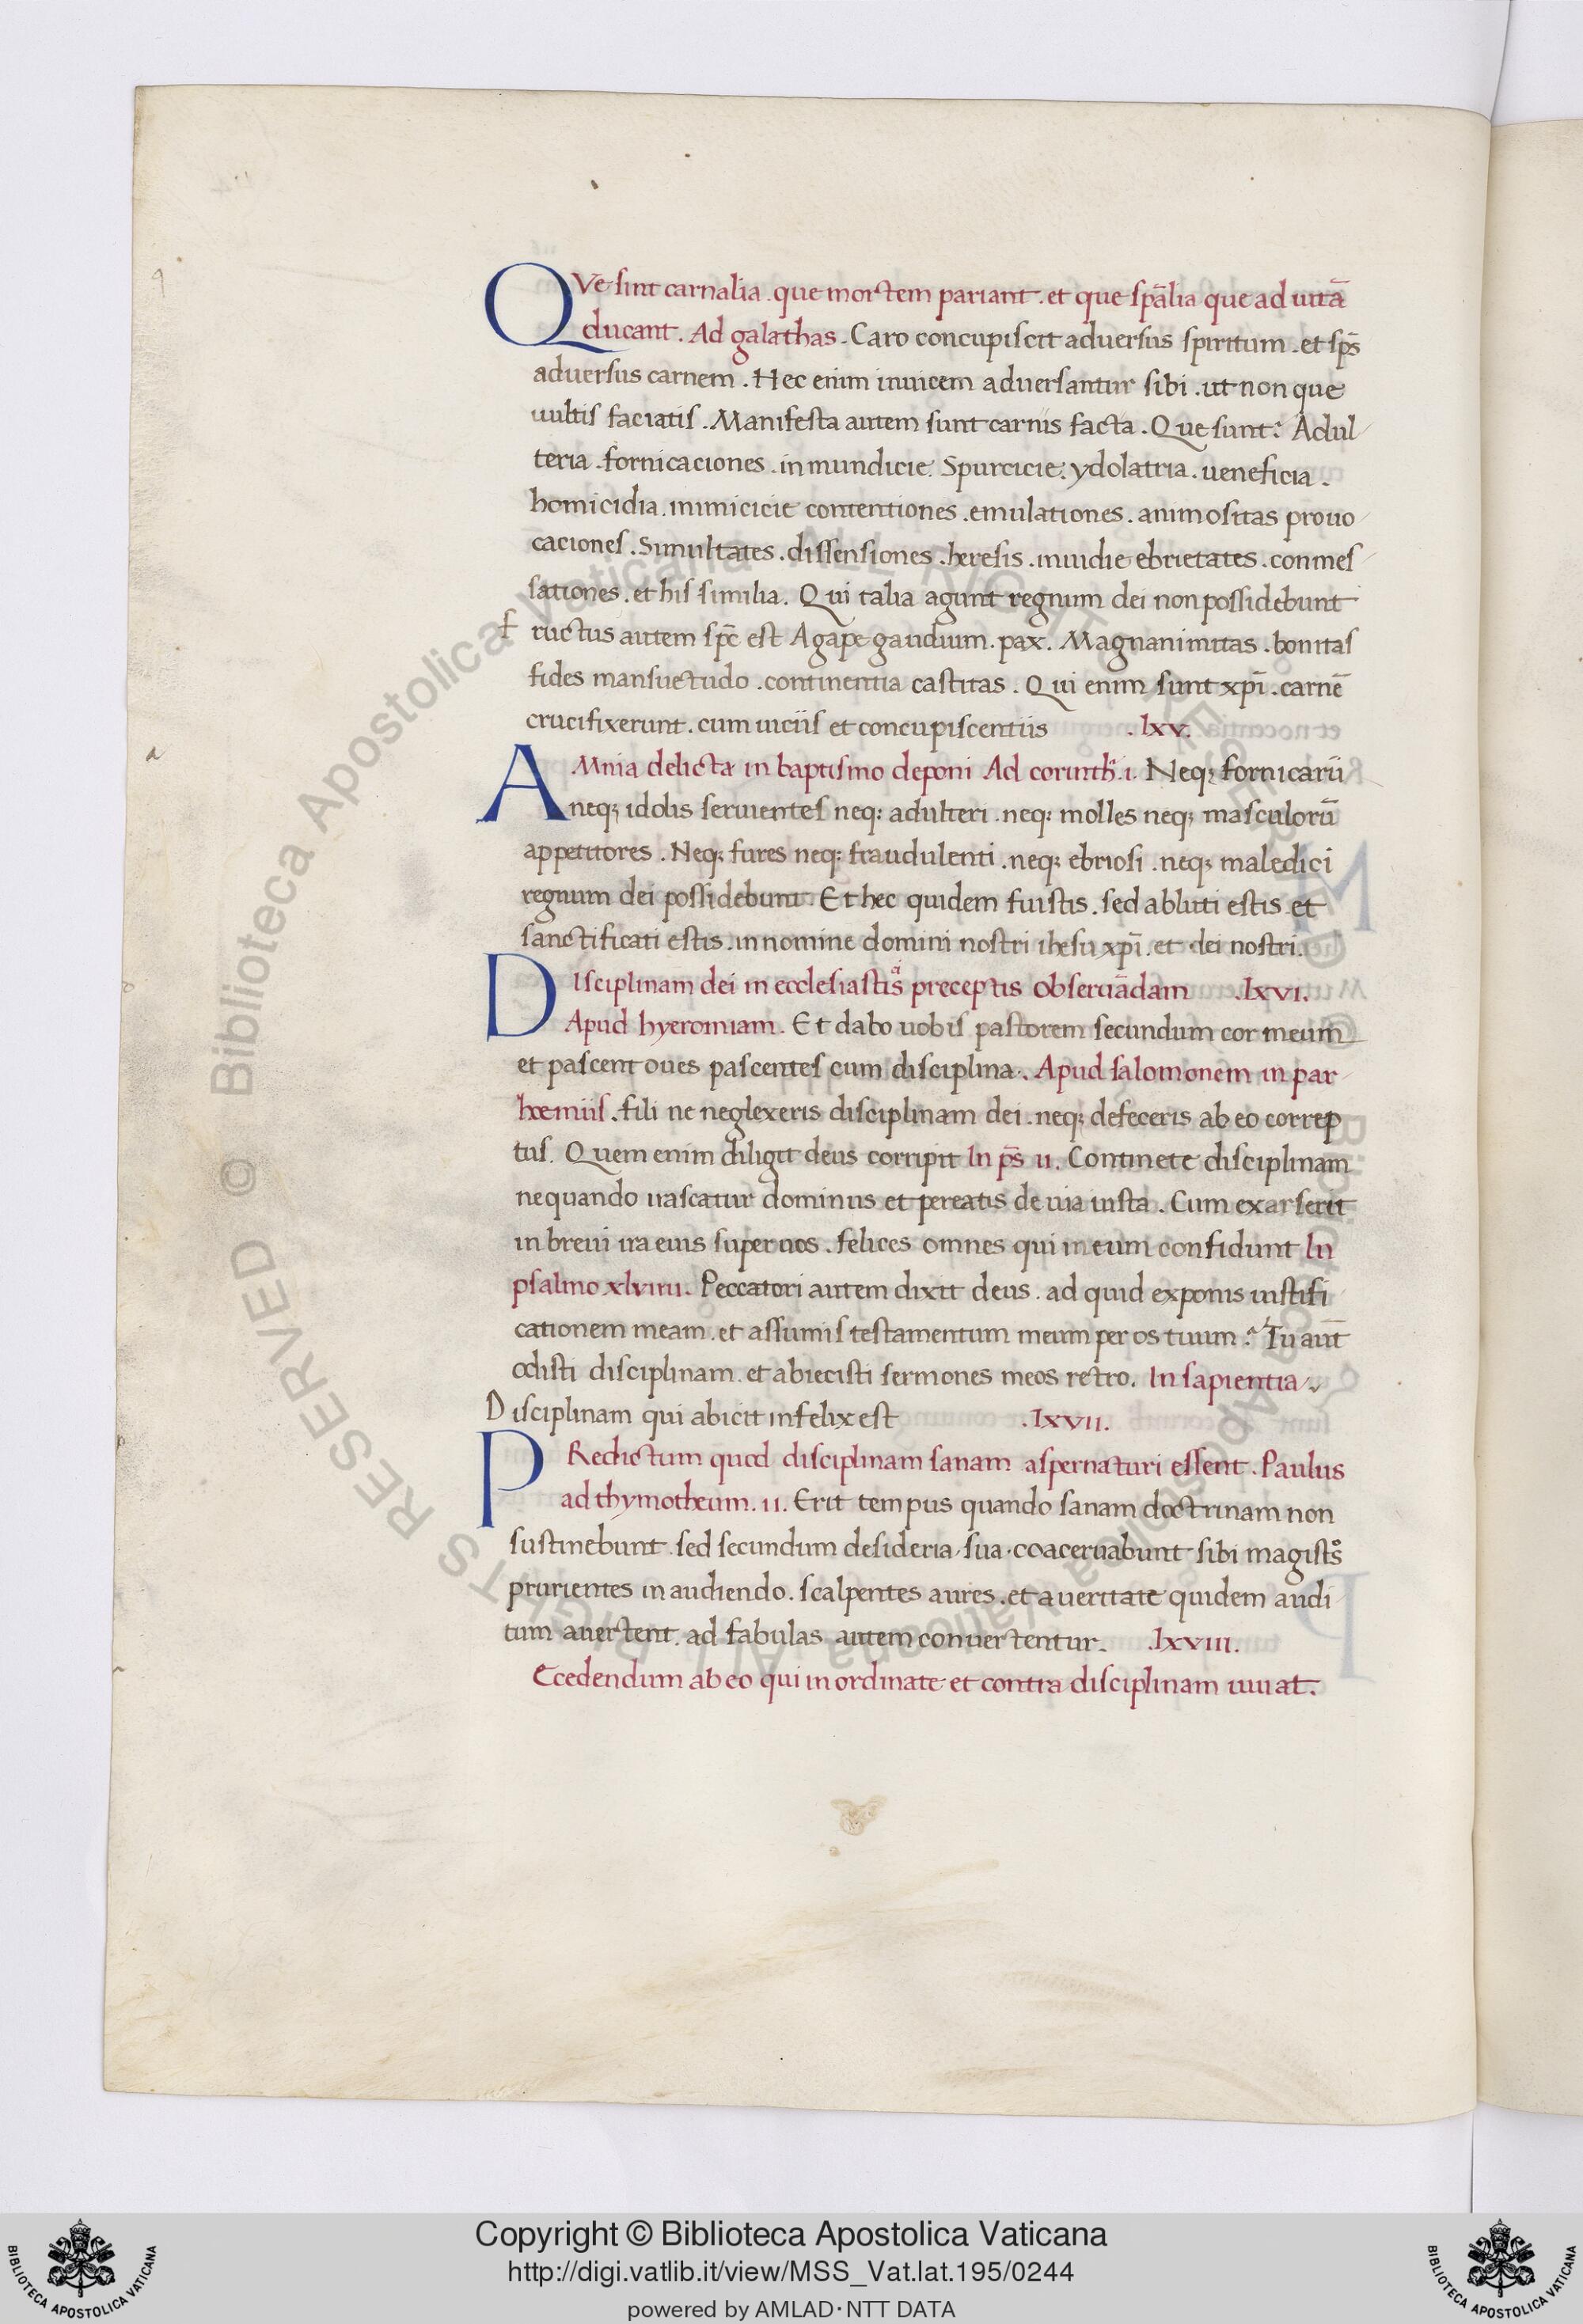 QVe sint carnalia . que mortem pariant . et que sp̄alia que ad uitā
ducant . Ad galathas . Caro concupiscit aduersus spiritum . et sp̄s
aduersus carnem . Hec enim inuicem aduersantur sibi . ut non que
uultis faciatis . Manifesta autem sunt carnis facta . Que sunt : Adul
teria . fornicaciones . inmundicie . Spurcicie . ydolatria . ueneficia .
homicidia . inimicicie contentiones . emulationes . animositas prouo
caciones . Simultates . dissensiones . heresis . inuidie ebrietates . conmes
sationes . et his similia . Qui talia agunt regnum dei non possidebunt
fructus autem sp̄c est Agape gaudium . pax . Magnanimitas . bonitas
fides mansuetudo . continentia castitas . Qui enim sunt xp̄i . carnē
crucifixerunt . cum uiciis et concupiscentiis . lxv.
AMnia delicta in baptismo deponi Ad corinth̄ . i . Neq; fornicarii
neq; idolis seruientes neq; adulteri . neq; molles neq; masculorū
appetitores . Neq; fures neq; fraudulenti . neq; ebriosi . neq; maledici
regnum dei possidebunt . Et hec quidem fuistis . sed abluti estis et
sanctificati estis . in nomine domini nostri ihesu xp̄i . et dei nostri .
DIsciplinam dei in ecclesiastis̄ preceptis obseruādam . lxvi .
Apud hyeromiam . Et dabo uobis pastorem secundum cor meum
et pascent oues pascentes cum disciplina . Apud salomonem in par
hoemiis . fili ne neglexeris disciplinam dei . neq; defeceris ab eo correp
tus . Quem enim diligit deus corripit In ps̄ ii . Continete disciplinam
nequando irascatur dominus et pereatis de uia iusta . Cum exarserit
in breui ira eius super uos . felices omnes qui in eum confidunt In
psalmo xlviiii . Peccatori autem dixit deus . ad quid exponis iustifi
cationem meam . et assumis testamentum meum per os tuum : Tu aut̄
odisti disciplinam . et abiecisti sermones meos retro . In sapientia .
Disciplinam qui abicit infelix est . lxvii .
PRedictum quod disciplinam sanam aspernaturi essent . Paulus
ad thymotheum . ii . Erit tempus quando sanam doctrinam non
sustinebunt . sed secundum desideria . sua . coaceruabunt sibi magist̊s
prurientes in audiendo . scalpentes aures . et a ueritate quidem audi
tum auertent . ad fabulas autem conuertentur . lxviii .
Ecedendum ab eo qui inordinate et contra disciplinam uiuat .
© Biblioteca Apostolica Vaticana ALL RIGHTS RESERVED
Copyright © Biblioteca Apostolica Vaticana
http://digi.vatlib.it/view/MSS_Vat.lat.195/0244
powered by AMLAD·NTT DATA
BIBLIOTECA APOSTOLICA VATICANA
BIBLIOTECA APOSTOLICA VATICANA